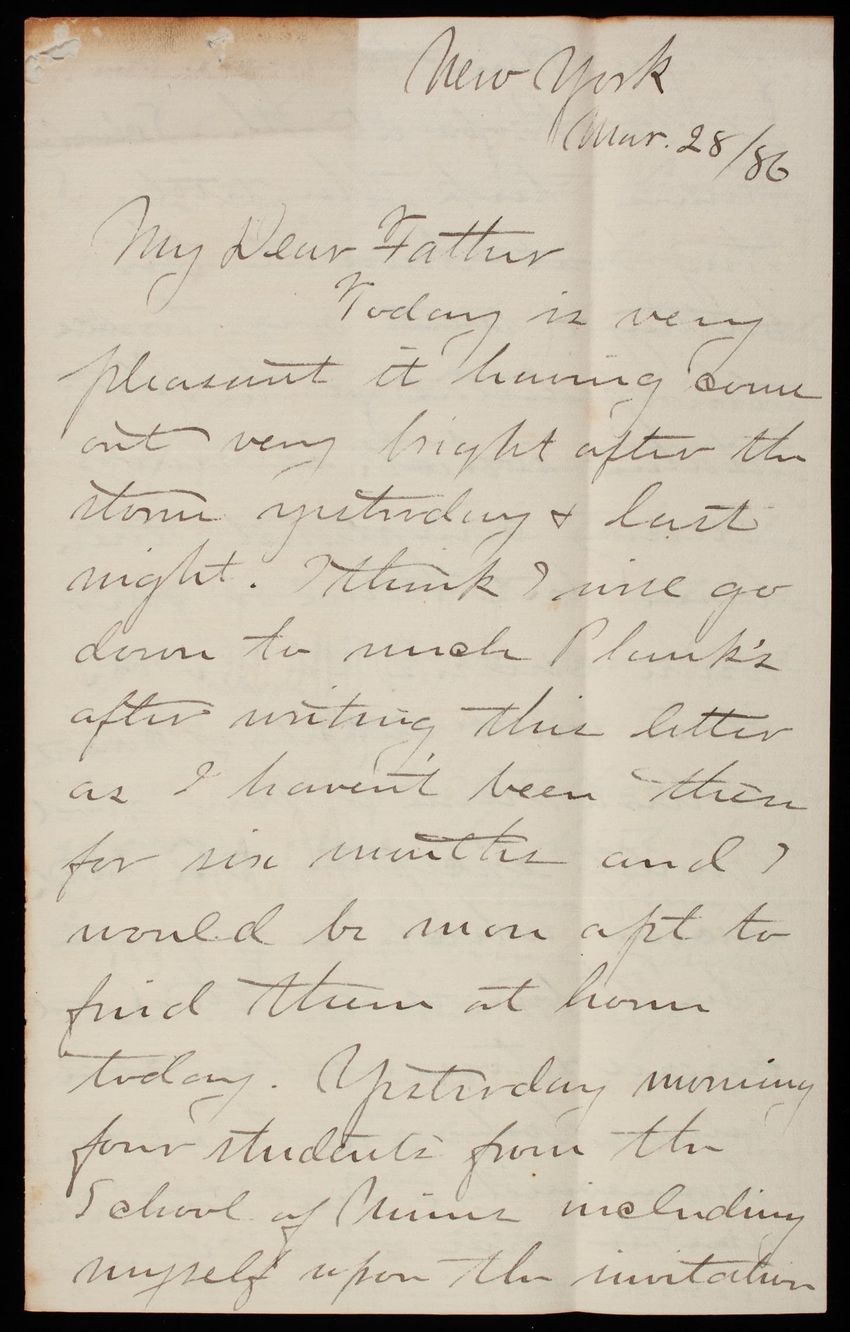 New York
Mar. 28/86
My Dear Father
Today is very
pleasant it having come
out very bright after the
storm yesterday & last
night. I think I will go
down to Plank's
after writing this letter
as I haven't been there
for six months and I
would be more apt to
find them at home
today. Yesterday morning
four students from the
School of Mines including
myself upon the invitation